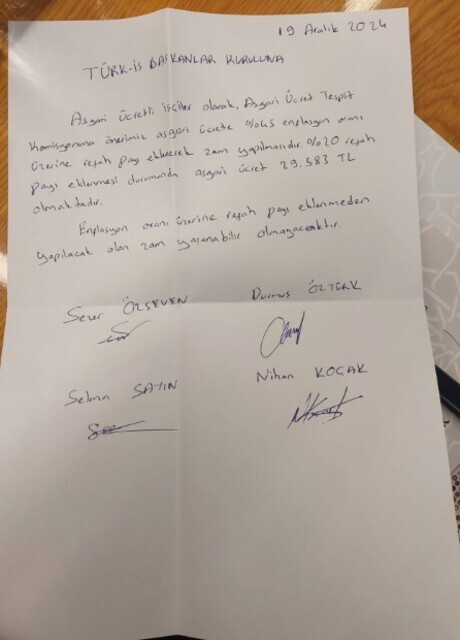 19 Aralık 2024
TÜRK-İŞ BAŞKANLAR KURULUNA
Asgari ücretli işçiler olarak, Asgari Ücret Tespit
Komisyonuna önerimiz asgari ücrete %45 enflasyon oranı
üzerine refah payı eklenerek zam yapılmasıdır. %20 refah
payı eklenmesi durumunda asgari ücret 29.583 TL
olmaktadır.
Enflasyon oranı üzerine refah payı eklenmeden
yapılacak olan zam yaşanabilir olmayacaktır.
Sezer ÖZSEVEN
Durmuş ÖZTÜRK
Selma SATIN
Nihan KOÇAK